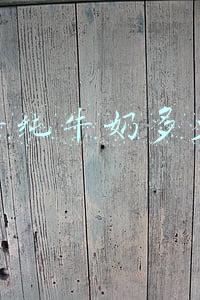 纯牛奶多